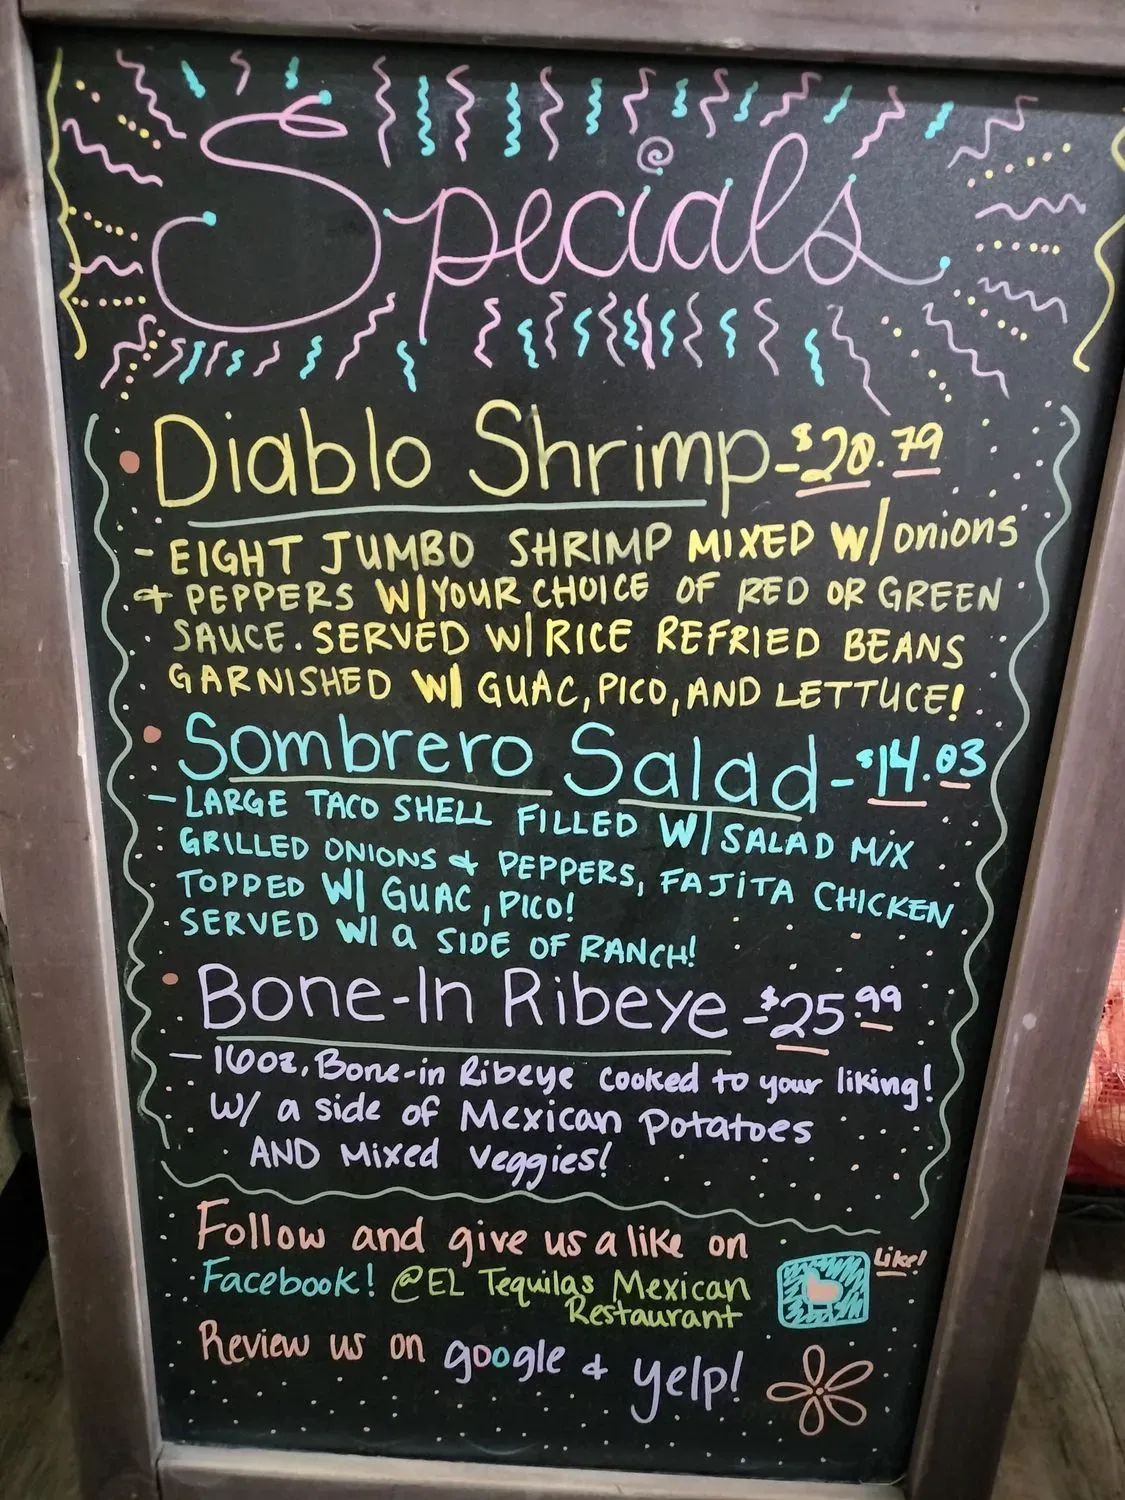 Specials
Diablo Shrimp-$20.79
- EIGHT JUMBO SHRIMP MIXED W/onions
+ PEPPERS W/YOUR CHOICE OF RED OR GREEN
SAUCE. SERVED W/RICE REFRIED BEANS
GARNISHED W/ GUAC, PICO, AND LETTUCE!
Sombrero Salad-$14.03
- LARGE TACO SHELL FILLED W/SALAD MIX
GRILLED ONIONS & PEPPERS, FAJITA CHICKEN
TOPPED W/ GUAC, PICO!
SERVED W/ a SIDE OF RANCH!
Bone-In Ribeye-$25.99
- 16oz. Bone-in Ribeye cooked to your liking!
W/ a side of Mexican Potatoes
AND Mixed Veggies!
Follow and give us a like on
Facebook! @EL Tequilas Mexican
Restaurant
Like!
Review us on google & yelp!